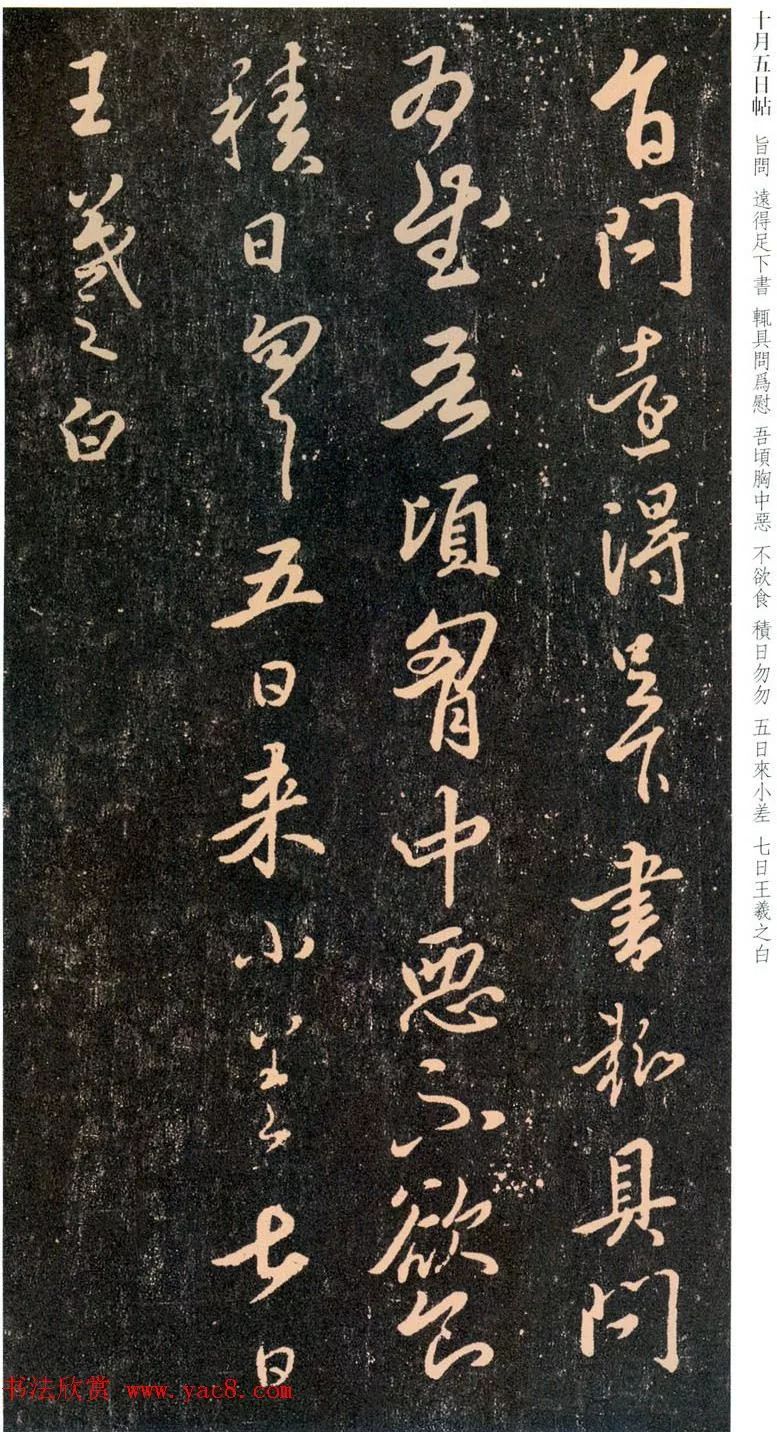 十月五日帖 旨問 遠得足下書 輒具問爲慰 吾頃胸中惡 不欲食 積日勿勿 五日來小差 七日王羲之白
旨問遠得足下書輒具問
爲慰吾頃胷中惡不欲食
積日勿勿五日来小差七日
王羲之白
书法欣赏 www.yac8.com